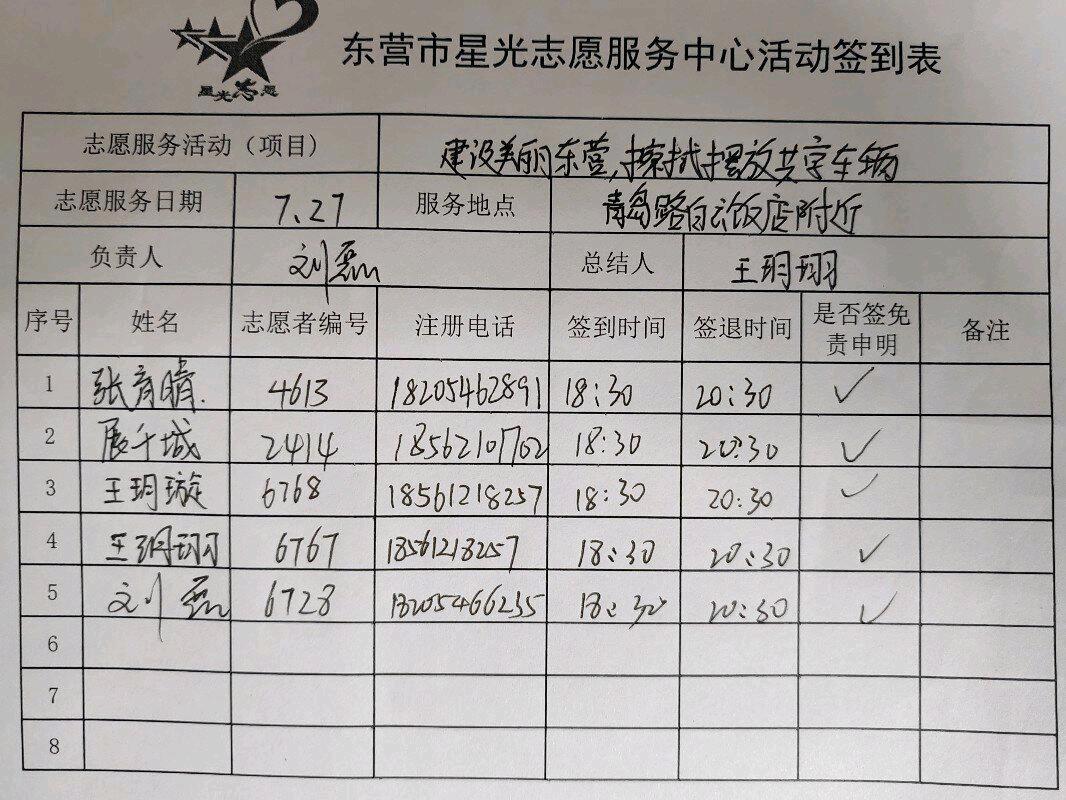 星光志愿
东营市星光志愿服务中心活动签到表
志愿服务活动（项目） 建设美丽东营,擦拭摆放共享车辆
志愿服务日期 7.27 服务地点 青岛路白云饭店附近
负责人 刘磊 总结人 王玥珝
序号 姓名 志愿者编号 注册电话 签到时间 签退时间 是否签免责申明 备注
1 张育晴. 4613 18205462891 18:30 20:30 ✓
2 展千城 2414 18562107702 18:30 20:30 ✓
3 王玥璇 6768 18561218257 18:30 20:30 ✓
4 王玥珝 6767 18561218257 18:30 20:30 ✓
5 刘磊 6728 18205466235 18:30 20:30 ✓
6
7
8